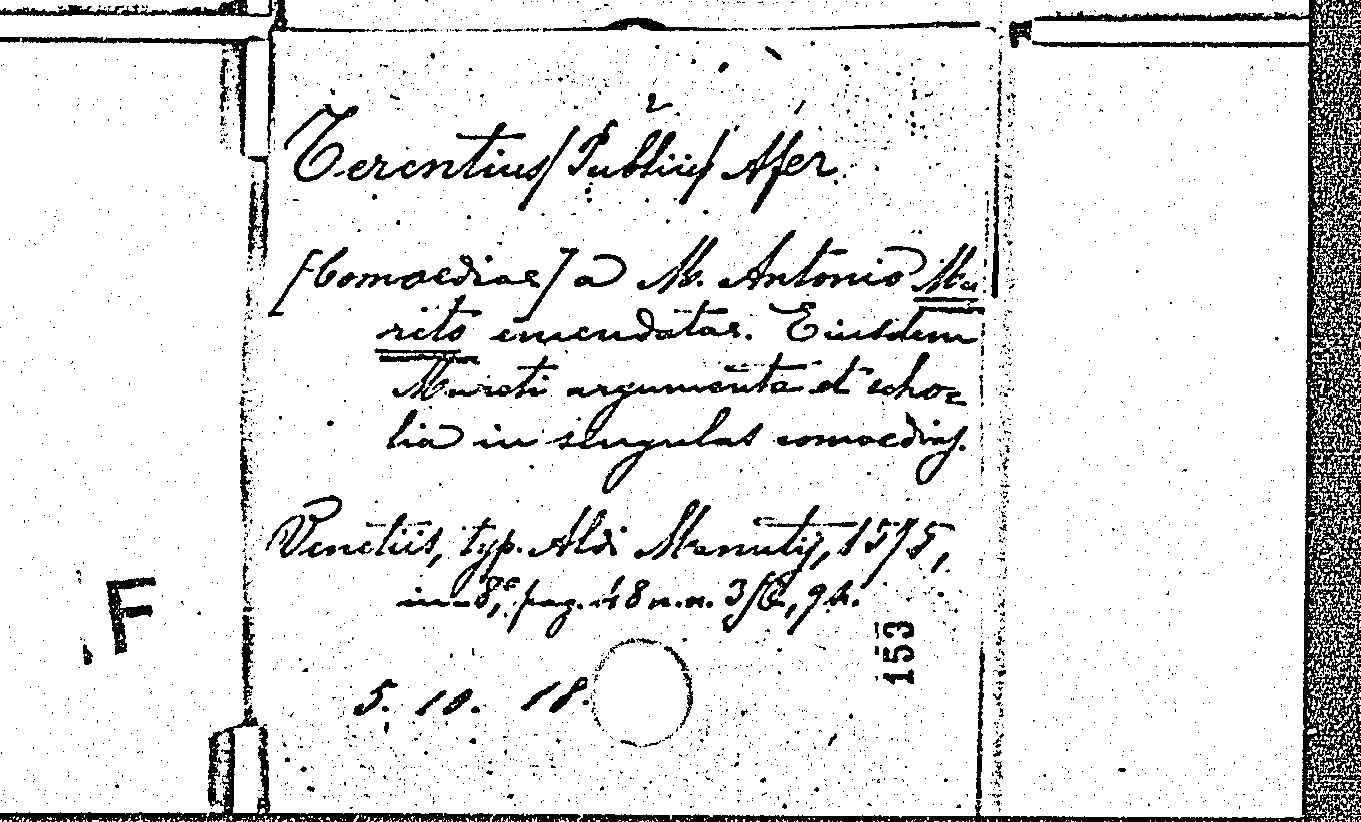 Terentius/ Publius/ Afer.
2 1
[Comoediae] a M. Antonio Mu
reto emendatae. Eiusdem
Mureti argumenta et scho=
lia in singulas comoedias.
Venetiis, typ. Aldi Manutij, 1575,
in-8,° pag. 48 n.n.
5. 10. 18.
153
F